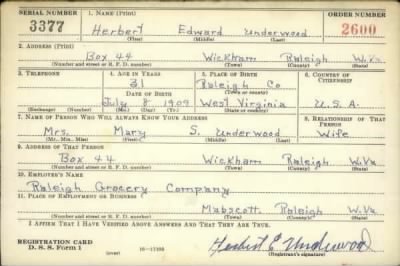 SERIAL NUMBER 1. NAME (Print) ORDER NUMBER
3377 Herbert Edward Underwood 2600
(First) (Middle) (Last)
2. ADDRESS (Print)
Box 44 Wickham Raleigh W.Va.
(Number and street or R. F. D. number) (Town) (County) (State)
3. TELEPHONE 4. AGE IN YEARS 5. PLACE OF BIRTH 6. COUNTRY OF CITIZENSHIP
31 Raleigh Co.
DATE OF BIRTH (Town or county)
July 8 1909 West Virginia U.S.A.
(Exchange) (Number) (Mo.) (Day) (Yr.) (State or country)
7. NAME OF PERSON WHO WILL ALWAYS KNOW YOUR ADDRESS 8. RELATIONSHIP OF THAT PERSON
Mrs. Mary S. Underwood Wife
(Mr., Mrs., Miss) (First) (Middle) (Last)
9. ADDRESS OF THAT PERSON
Box 44 Wickham Raleigh W.Va
(Number and street or R. F. D. number) (Town) (County) (State)
10. EMPLOYER'S NAME
Raleigh Grocery Company
11. PLACE OF EMPLOYMENT OR BUSINESS
Mabscott Raleigh W.Va
(Number and street or R. F. D. number) (Town) (County) (State)
I AFFIRM THAT I HAVE VERIFIED ABOVE ANSWERS AND THAT THEY ARE TRUE.
REGISTRATION CARD
D. S. S. Form 1 (over) Herbert E Underwood
(Registrant's signature)